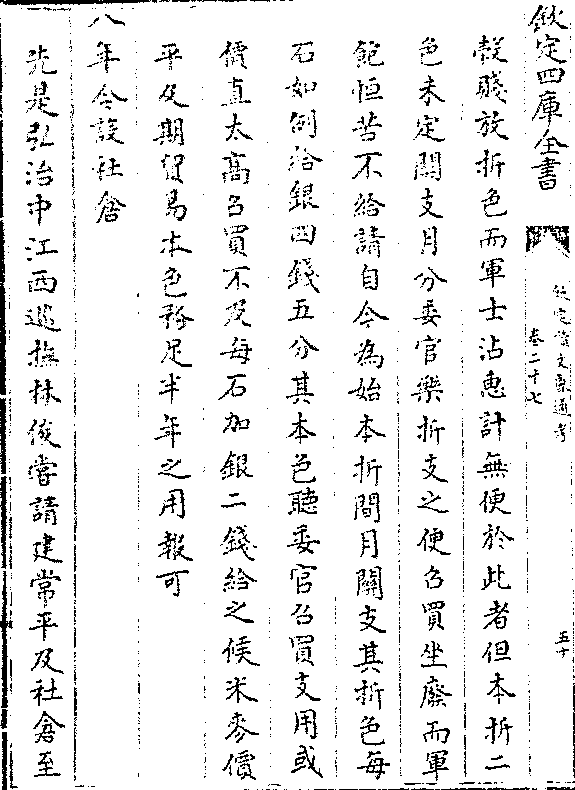 欽定四庫全書
欽定續文獻通考
卷二十七
五十
穀賤放折色而軍士沾惠計無便於此者但本折二
色未定關支月分委官樂折支之便召買坐廢而軍
飽恒苦不給請自今為始本折間月關支其折色每
石如例給銀四錢五分其本色聽委官召買支用或
價直太高召買不及每石加銀二錢給之候米麥價
平及期貿易本色務足半年之用報可
八年令設社倉
先是弘治中江西巡撫林俊嘗請建常平及社倉至